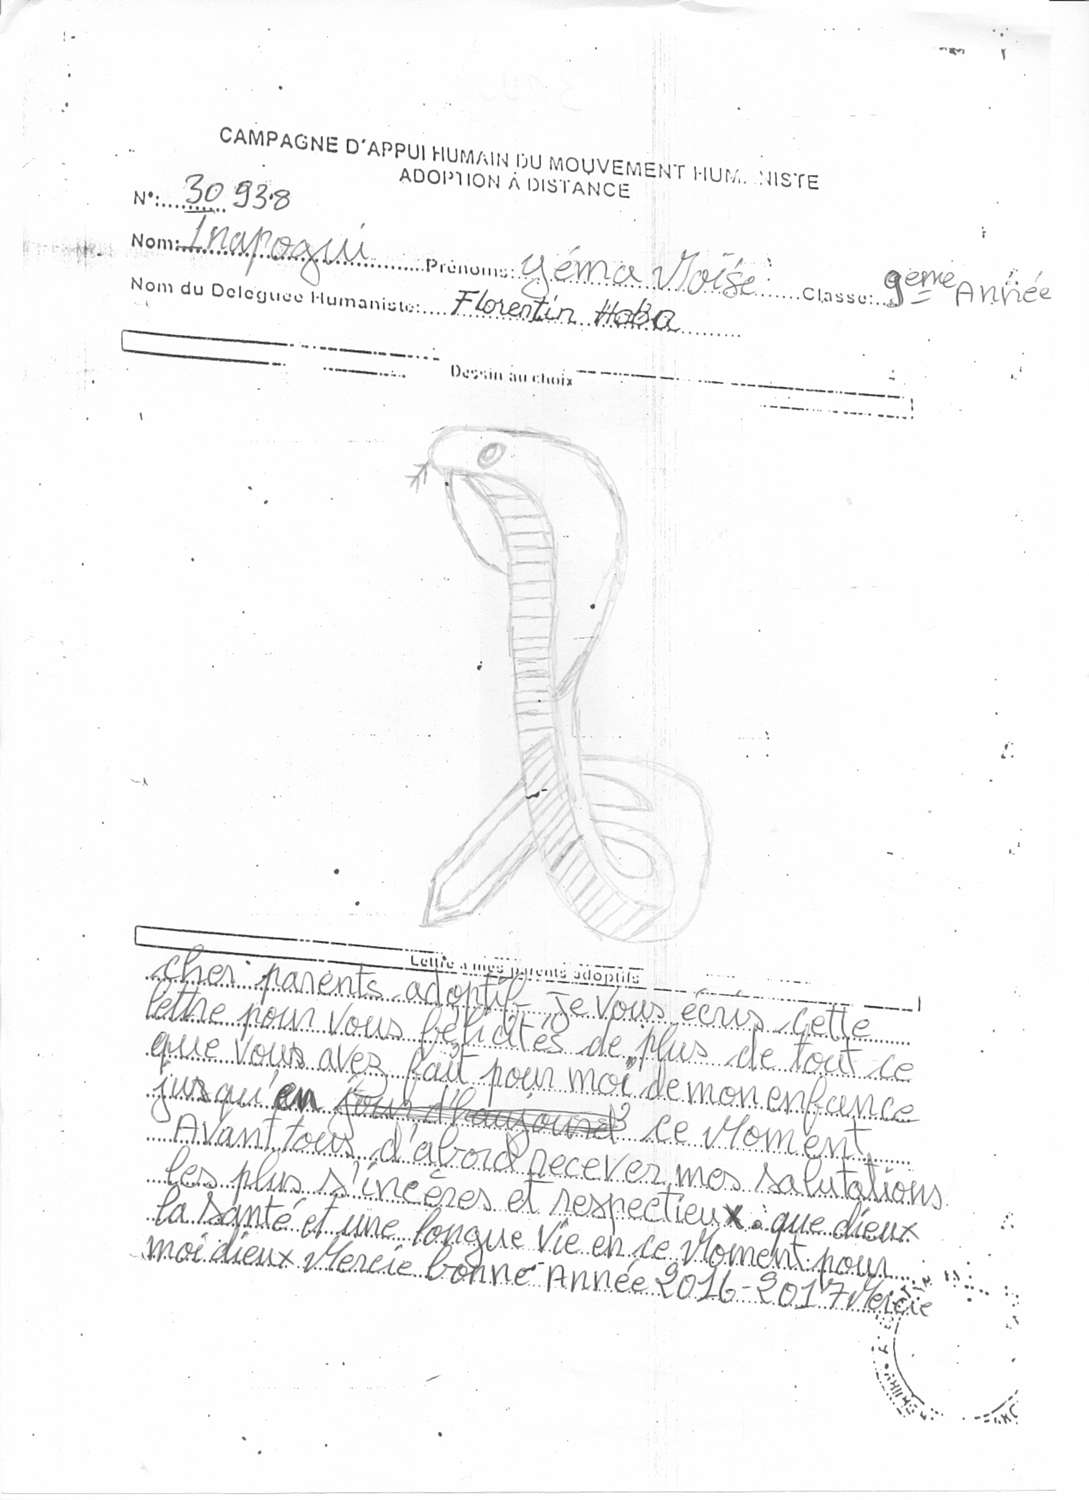 CAMPAGNE D'APPUI HUMAIN DU MOUVEMENT HUMANISTE
ADOPTION À DISTANCE
N°: 30 938
Nom: Inapogui Prénoms: yéma Moïse Classe: 9ème Année
Nom du Deleguee Humaniste: Florentin Haba
Dessin au choix
Lettre a mes parents adoptifs
cher parents adoptif je vous écris cette
lettre pour vous félicités de plus de tout ce
que vous aves fait pour moi de mon enfance
jusqu'en ce Moment
Avant tous d'abord recever mes salutations
les plus s'incères et respectieux que dieux
la santé et une longue vie en ce Moment pour
moi dieux Mercie bonne Année 2016-2017 Mercie